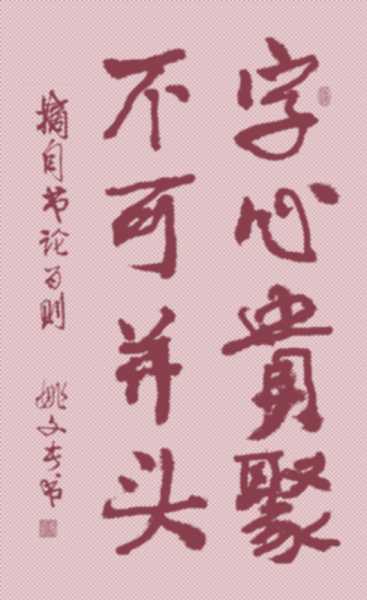 字心貴聚
不可并头
摘自书论百则
姚文奎书